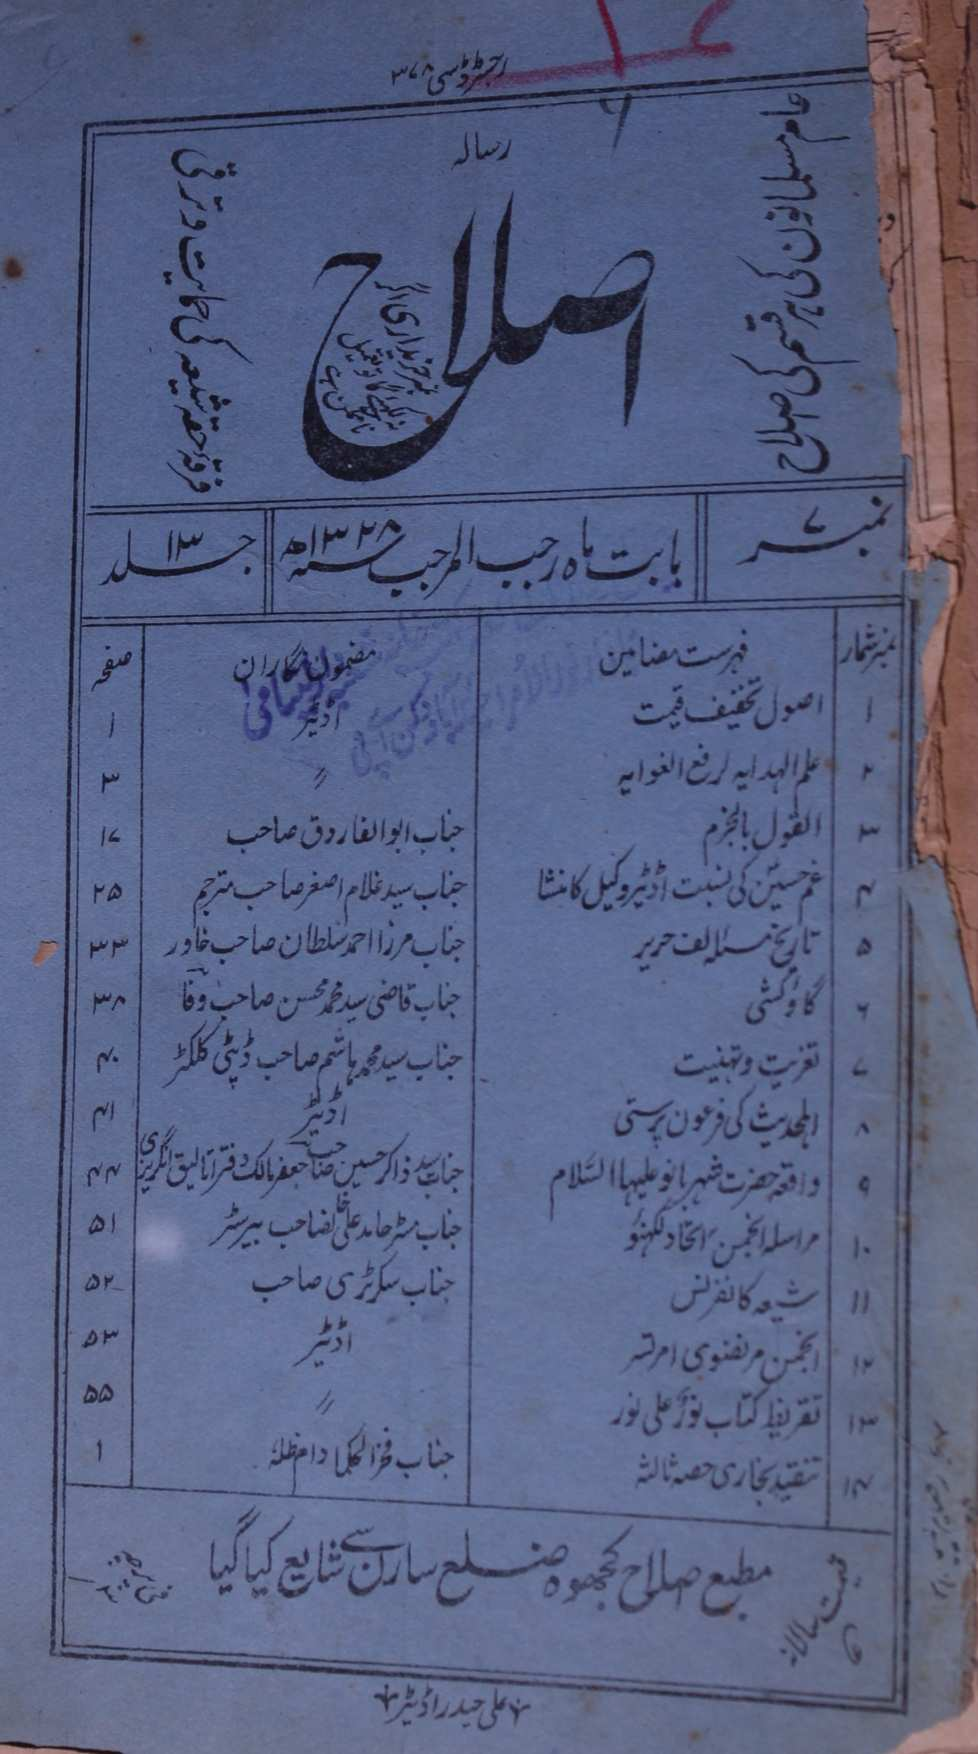 رجسٹرڈ سی ۳۷۸
رسالہ
عام مسلمانوں کی ہر قسم کی اصلاح
اصلاح
نمبر خریداری اگر
نہ لکھئے گا تو تعمیل
ناممکن ہے
فرقۂ حقہ شیعہ کی حمایت و ترقی
نمبر ۷
بابت ماہ رجب المرجب سنہ ۱۳۲۸ھ
جلد ۱۳
نمبر شمار فہرست مضامین مضمون نگاران صفحہ
۱ اصول تخفیف قیمت اڈیٹر ۱
۲ علم الہدایہ لرفع الغوایہ // ۳
۳ القول بالجزم جناب ابوالفاروق صاحب ۱۷
۴ غم حسینؑ کی نسبت اڈیٹر وکیل کا منشا جناب سید غلام اصغر صاحب مترجم ۲۵
۵ تاریخ مسئلہ لف حریر جناب مرزا احمد سلطان صاحب خاور ۳۳
۶ گاؤکشی جناب قاضی سید محمد محسن صاحب وفا ۳۸
۷ تعزیت و تہنیت جناب سید محمد ہاشم صاحب ڈپٹی کلکٹر ۴۰
۸ اہلحدیث کی فرعون پرستی اڈیٹر ۴۱
۹ واقعہ حضرت شہر بانو علیہا السلام جناب سید ذاکر حسین صاحب جعفر مالک دفتر اتالیق انگریزی ۴۴
۱۰ مراسلہ انجمن اتحاد لکھنؤ جناب مسٹر حامد علی خانصاحب بیرسٹر ۵۱
۱۱ شیعہ کانفرنس جناب سکرٹری صاحب ۵۲
۱۲ انجمن مرتضوی امرتسر اڈیٹر ۵۳
۱۳ تقریظ کتاب نورٌ علی نور // ۵۵
۱۴ تنقید بخاری حصہ ثالثہ جناب فخر الحکما دام ظلہ ۱
قیمت سالانہ
مطبع اصلاح کھجوہ ضلع سارن سے شایع کیا گیا
فی پرچہ
علی حیدر اڈیٹر